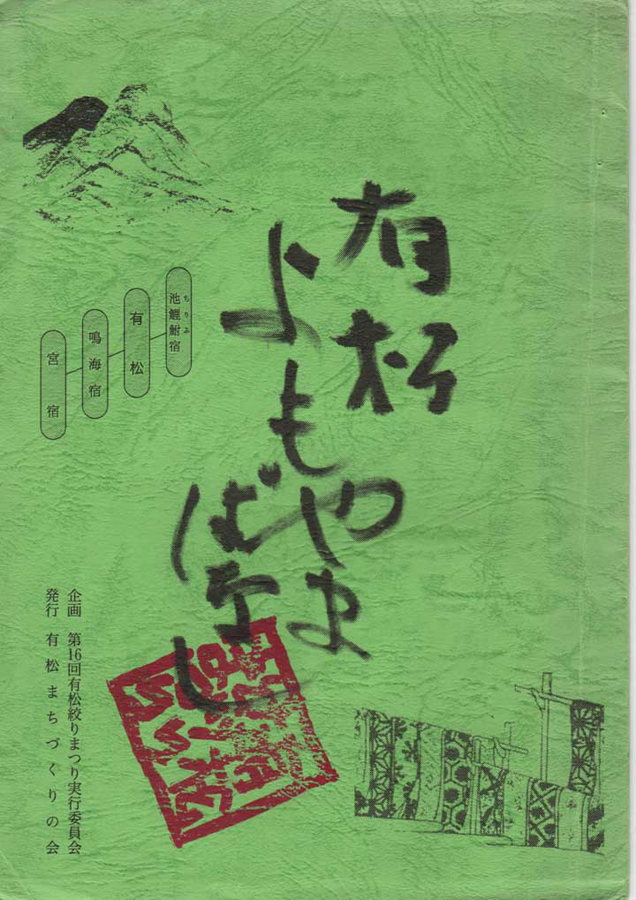 有松
よもやま
ばなし
池鯉鮒宿
ちりふ
有松
鳴海宿
宮宿
企画 第16回有松絞りまつり実行委員会
発行 有松まちづくりの会